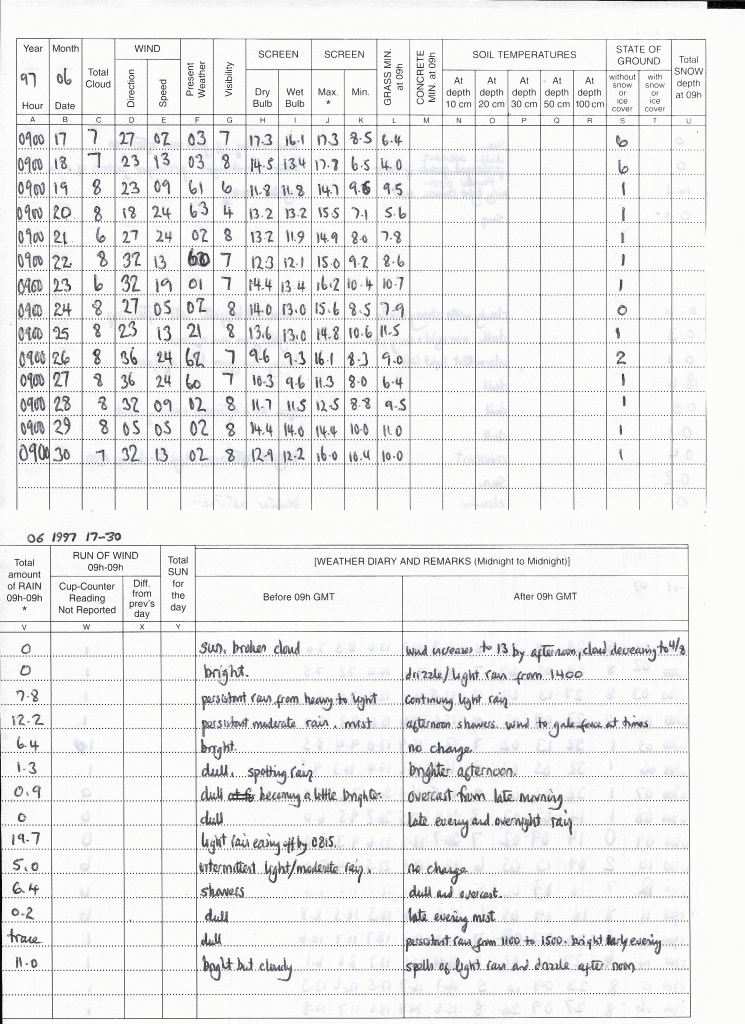 Year Month Total Cloud WIND Present Weather Visibility SCREEN SCREEN GRASS MIN. at 09h CONCRETE MIN. at 09h SOIL TEMPERATURES STATE OF GROUND Total SNOW depth at 09h
97 06 Direction Speed Dry Bulb Wet Bulb Max. * Min. At depth 10 cm At depth 20 cm At depth 30 cm At depth 50 cm At depth 100 cm without snow or ice cover with snow or ice cover
Hour Date
A B C D E F G H I J K L M N O P Q R S T U
0900 17 7 27 02 03 7 17.3 16.1 17.3 8.5 6.4 6
0900 18 7 23 13 03 8 14.5 13.4 17.8 6.5 4.0 6
0900 19 8 23 09 61 6 11.8 11.8 14.7 9.6 9.5 1
0900 20 8 18 24 63 4 13.2 13.2 15.5 7.1 5.6 1
0900 21 6 27 24 02 8 13.2 11.9 14.9 8.0 7.8 1
0900 22 8 32 13 60 7 12.3 12.1 15.0 9.2 8.6 1
0900 23 6 32 19 01 7 14.4 13.4 16.2 10.4 10.7 1
0900 24 8 27 05 02 8 14.0 13.0 15.6 8.5 7.9 0
0900 25 8 23 13 21 8 13.6 13.0 14.8 10.6 11.5 1
0900 26 8 36 24 62 7 9.6 9.3 16.1 8.3 9.0 2
0900 27 8 36 24 60 7 10.3 9.6 11.3 8.0 6.4 1
0900 28 8 32 09 02 8 11.7 11.5 12.5 8.8 9.5 1
0900 29 8 05 05 02 8 14.4 14.0 14.4 10.0 11.0 1
0900 30 7 32 13 02 8 12.9 12.2 16.0 10.4 10.0 1
06 1997 17-30
Total amount of RAIN 09h-09h * RUN OF WIND 09h-09h Total SUN for the day [WEATHER DIARY AND REMARKS (Midnight to Midnight)]
Cup-Counter Reading Not Reported Diff. from prev's day Before 09h GMT After 09h GMT
V W X Y
0 sun, broken cloud wind increases to 13 by afternoon, cloud decreasing to 4/8
0 bright. drizzle/light rain from 1400
7.8 persistent rain from heavy to light continuing light rain
12.2 persistent moderate rain. mist afternoon showers. wind to gale force at times
6.4 bright. no change
1.3 dull. spotting rain brighter afternoon.
0.9 dull becoming a little brighter. overcast from late morning
0 dull late evening and overnight rain
19.7 light rain easing off by 0815.
5.0 intermittent light/moderate rain. no change
6.4 showers dull and overcast.
0.2 dull late evening mist
trace dull persistent rain from 1100 to 1500. bright early evening
11.0 bright but cloudy spells of light rain and drizzle after noon